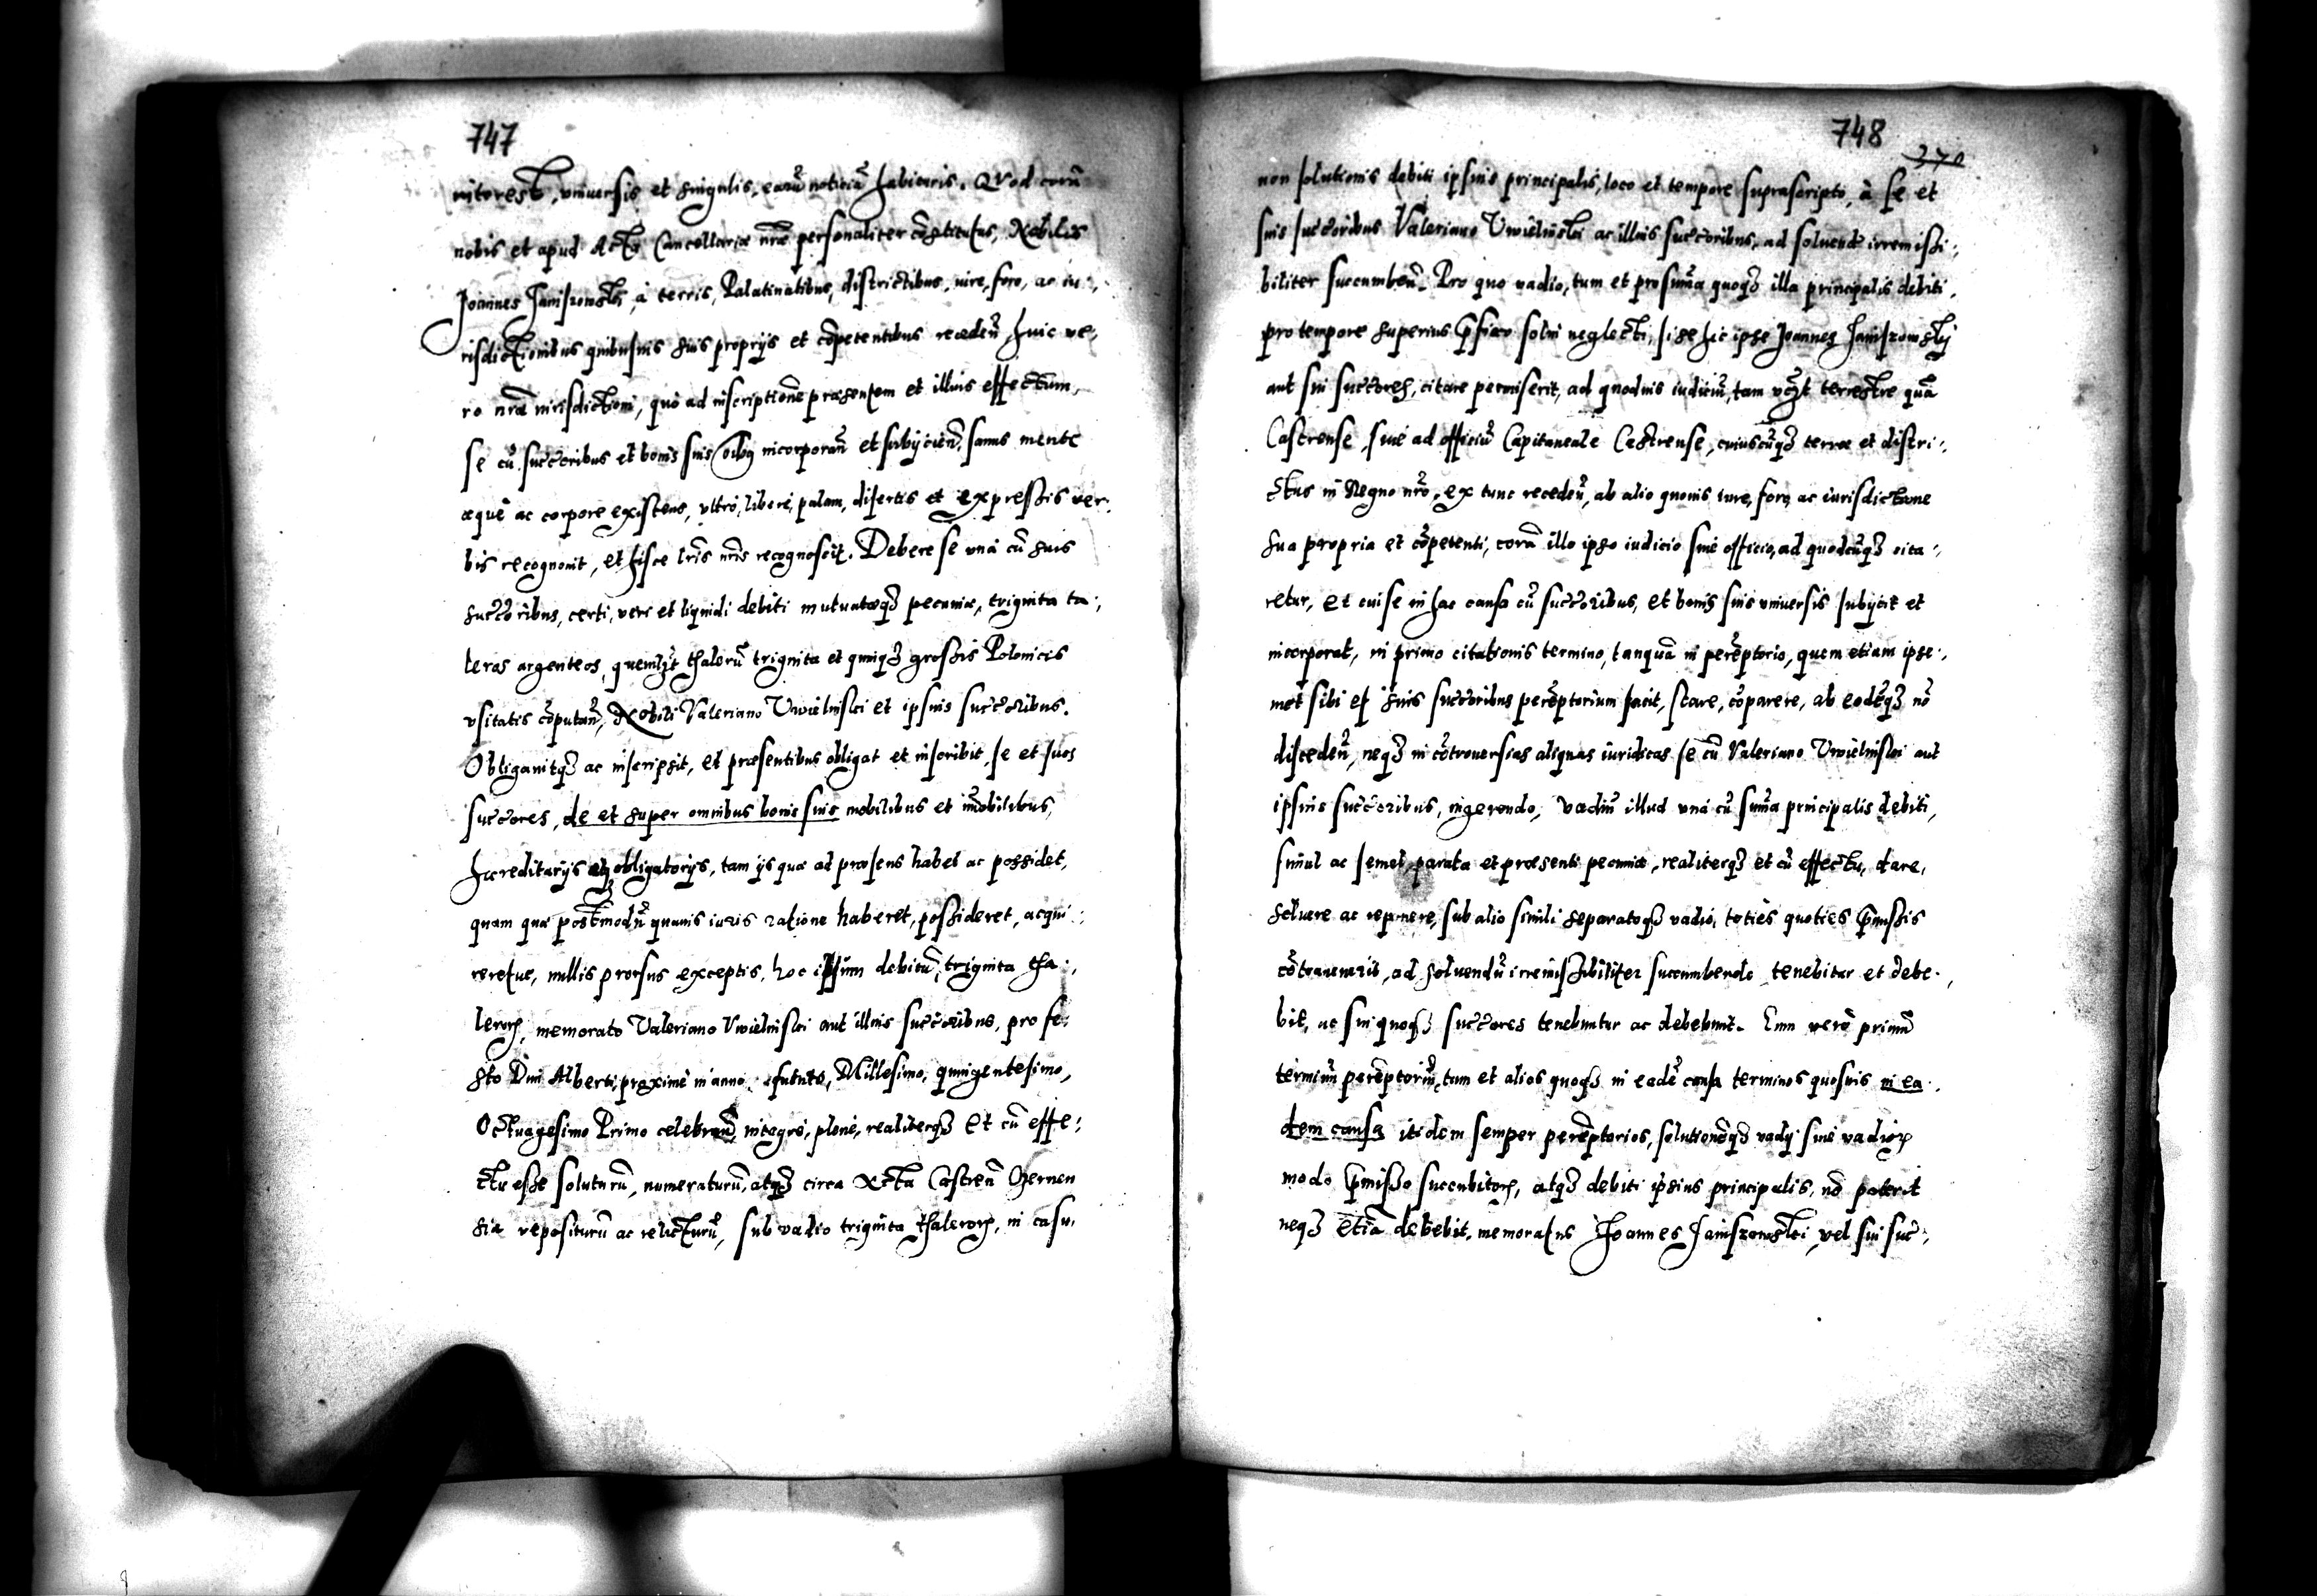 747
interest, vniuersis et singulis, earũ noticiã habituris. Quod corã
nobis et apud Acta Cancellariæ nrãe personaliter cõstitutus, Nobilis
Joannes Janiszowski, à terris, Palatinatibus, districtibus, iure, foro, ac iu:,
risdictionibus quibusuis suis proprijs et cõpetentibus recedeñ, huic ve:,
ro nrãe iurisdictioni, quò ad inscriptionẽ præsentem et illius effectum,
se cũ succoribus et bonis suis oĩbq incorporañ et subijcieñ, sanus mente
æquè ac corpore existens, vltrò, liberè, palam, disertis et expressis ver:
bis recognouit, et hisce lrĩs nrĩs recognoscit. Debere se vnà cũ suis
succoribus, certi, veri et liquidi debiti mutuatæqȝ pecuniæ, triginta ta:,
leros argenteos, quemlȝt thalerũ triginta et quinqȝ grossis Polonicis
vsitatis cõputañ, Nobili Valeriano Vwielinski et ipsius succoribus.
Obligauitqȝ ac inscripsit, et præsentibus obligat et inscribit, se et suos
succores, de et super omnibus bonis suis mobilibus et im̃obilibus,
hæreditarijs et obligatorijs, tam ijs quæ ad præsens habet ac possidet,
quam quæ postmodũ quauis iuris ratione haberet, possideret, acqui:
reretue, nullis prorsus exceptis, hoc ipsum debitũ, triginta tha:,
lerorꝝ, memorato Valeriano Vwielinski aut illius succoribus, pro fe:
sto Diui Alberti, proximè in anno futuro, Millesimo, quingentesimo,
Octuagesimo Primo celebrañ, integrè, plenè, realiterqȝ et cũ effe:
ctu esse soluturũ, numeraturũ, atqȝ circa Acta Castreñ Czernen
sia repositurũ ac relicturũ, sub vadio triginta thalerorꝝ, in casu,
748
370
non solutionis debiti ipsius principalis, loco et tempore suprascripto, à se et
suis succoribus Valeriano Vwielinski ac illius succoribus, ad soluendũ irremissi:,
biliter succumbeñ. Pro quo vadio, tum et pro sum̃a quoqȝ illa principalis debiti,
pro tempore superius p̃fixo solui neglecti, si se hic ipse Joannes Janiszowsky
aut sui succores, citare permiserit, ad quoduis iudiciũ, tam vȝt terrestre quã
Castrense, siue ad officiũ Capitaneale Castrense, cuiuscũqȝ terræ et distri:,
ctus in Regno nrõ, ex tunc recedeñ, ab alio quouis iure, foro, ac iurisdictione
sua propria et cõpetenti, corã illo ipso iudicio siue officio, ad quodcũqȝ cita:,
retur, et cui se in hac causa cũ succoribus, et bonis suis vniuersis subijcit et
incorporat, in primo citationis termino, tanquã in perẽptorio, quem etiam ipse:,
met sibi et suis succoribus perẽptorium facit, stare, cõparere, ab eodẽqȝ nõ
discedeñ, neqȝ in cõtrouersias aliquas iuridicas se cũ Valeriano Vwielinski aut
ipsius succoribus, ingerendo, vadiũ illud vnà cũ sum̃a principalis debiti,
simul ac semel, parata et præsenti pecunia, realiterqȝ et cũ effectu, dare,
soluere ac reponere, sub alio simili separatoqȝ vadio, toties quoties p̃missis
cõtrauenerit, ad soluendũ irremissibiliter succumbendo tenebitur et debe:,
bit, ac sui quoqȝ succores tenebuntur ac debebunt. Eum verò primũ
terminũ perẽptoriũ, tum et alios quoqȝ in eadẽ causa terminos quosuis in ea:
dem causa itidem semper perẽptorios, solutionẽqȝ vadij siue vadiorꝝ
modo p̃misso succubitorꝝ, atqȝ debiti ipsius principalis, nõ poterit
neqȝ etiã debebit, memoratus Joannes Janiszowski, vel sui suc:,